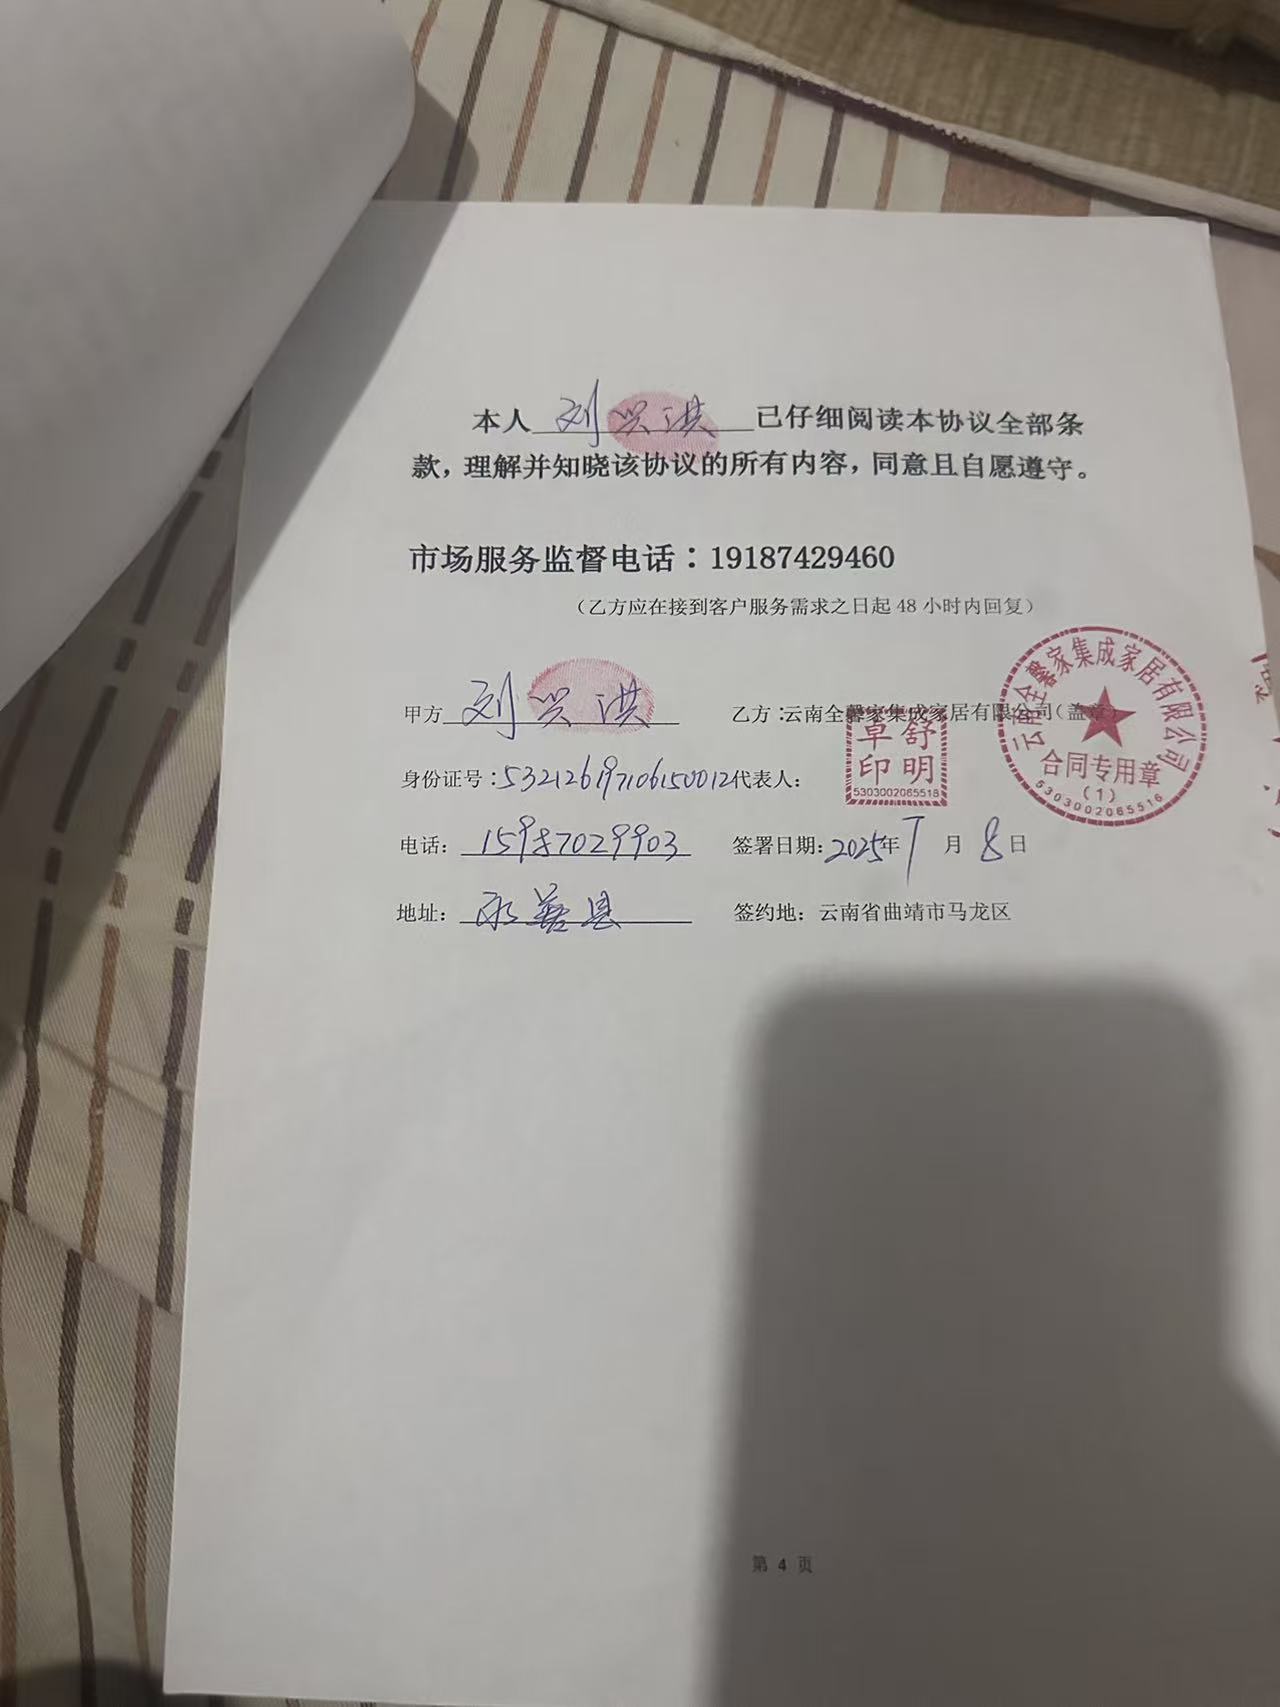 本人 刘兴洪 已仔细阅读本协议全部条
款，理解并知晓该协议的所有内容，同意且自愿遵守。
市场服务监督电话：19187429460
（乙方应在接到客户服务需求之日起 48 小时内回复）
甲方 刘兴洪 乙方：云南全馨家集成家居有限公司（盖章）
身份证号：532126197106150012 代表人：
电话：15987029903 签署日期：2025年 7 月 8 日
地址：永善县 签约地：云南省曲靖市马龙区
卓舒
印明
5303002065518
云南全馨家集成家居有限公司
合同专用章
（1）
5303002065516
第 4 页